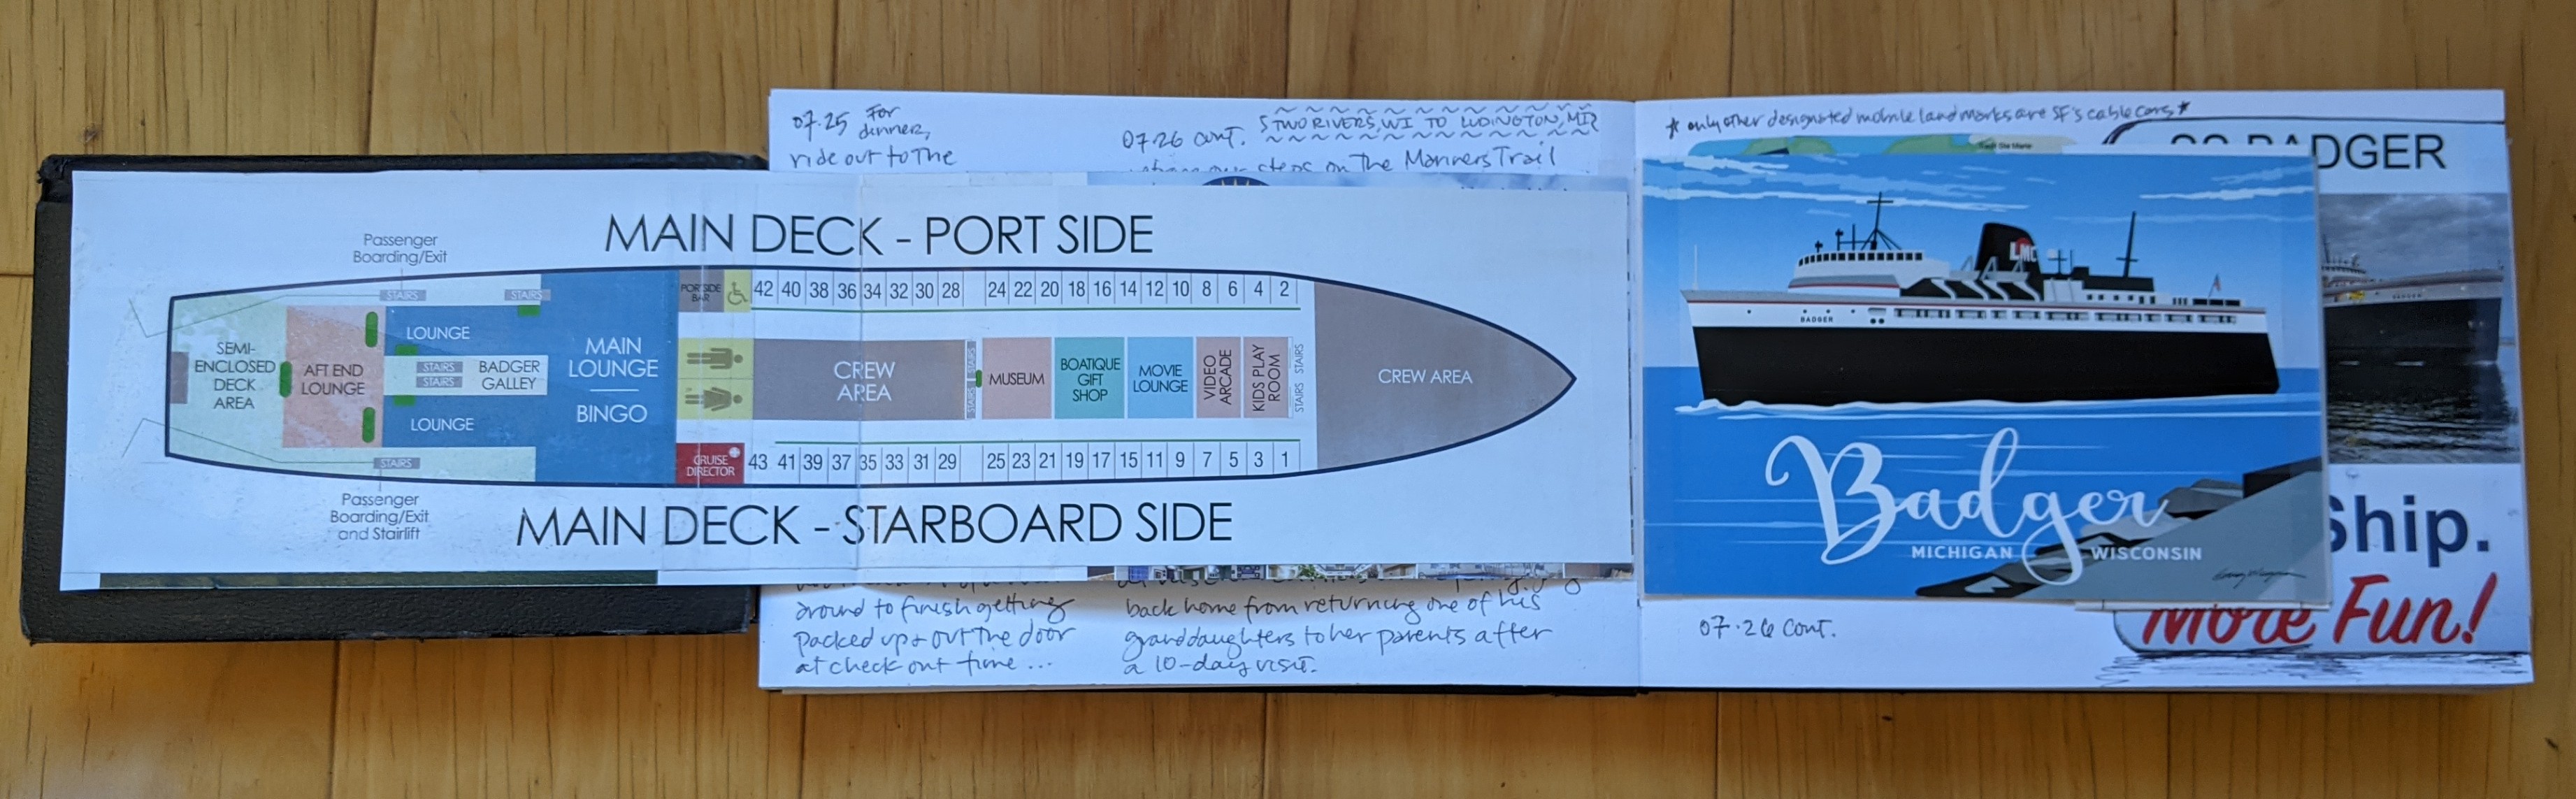 07.25 For
dinner,
ride out to The
07.26 cont.
TWO RIVERS, WI TO LUDINGTON, MI
steps on The Mariners Trail
MAIN DECK - PORT SIDE
Passenger
Boarding/Exit
STAIRS
STAIRS
PORTSIDE
BAR
42 40 38 36 34 32 30 28 24 22 20 18 16 14 12 10 8 6 4 2
SEMI-
ENCLOSED
DECK
AREA
AFT END
LOUNGE
LOUNGE
STAIRS
STAIRS
BADGER
GALLEY
LOUNGE
MAIN
LOUNGE
BINGO
CREW
AREA
STAIRS
STAIRS
MUSEUM
BOATIQUE
GIFT
SHOP
MOVIE
LOUNGE
VIDEO
ARCADE
KIDS PLAY
ROOM
STAIRS
STAIRS
CREW AREA
CRUISE
DIRECTOR
43 41 39 37 35 33 31 29 25 23 21 19 17 15 11 9 7 5 3 1
STAIRS
Passenger
Boarding/Exit
and Stairlift
MAIN DECK - STARBOARD SIDE
around to finish getting
packed up + out the door
at check out time ...
back home from returning one of his
granddaughters to her parents after
a 10-day visit.
* only other designated mobile landmarks are SF's cable cars *
BADGER
LMC
BADGER
Badger
MICHIGAN
WISCONSIN
Ship.
More Fun!
07.26 cont.